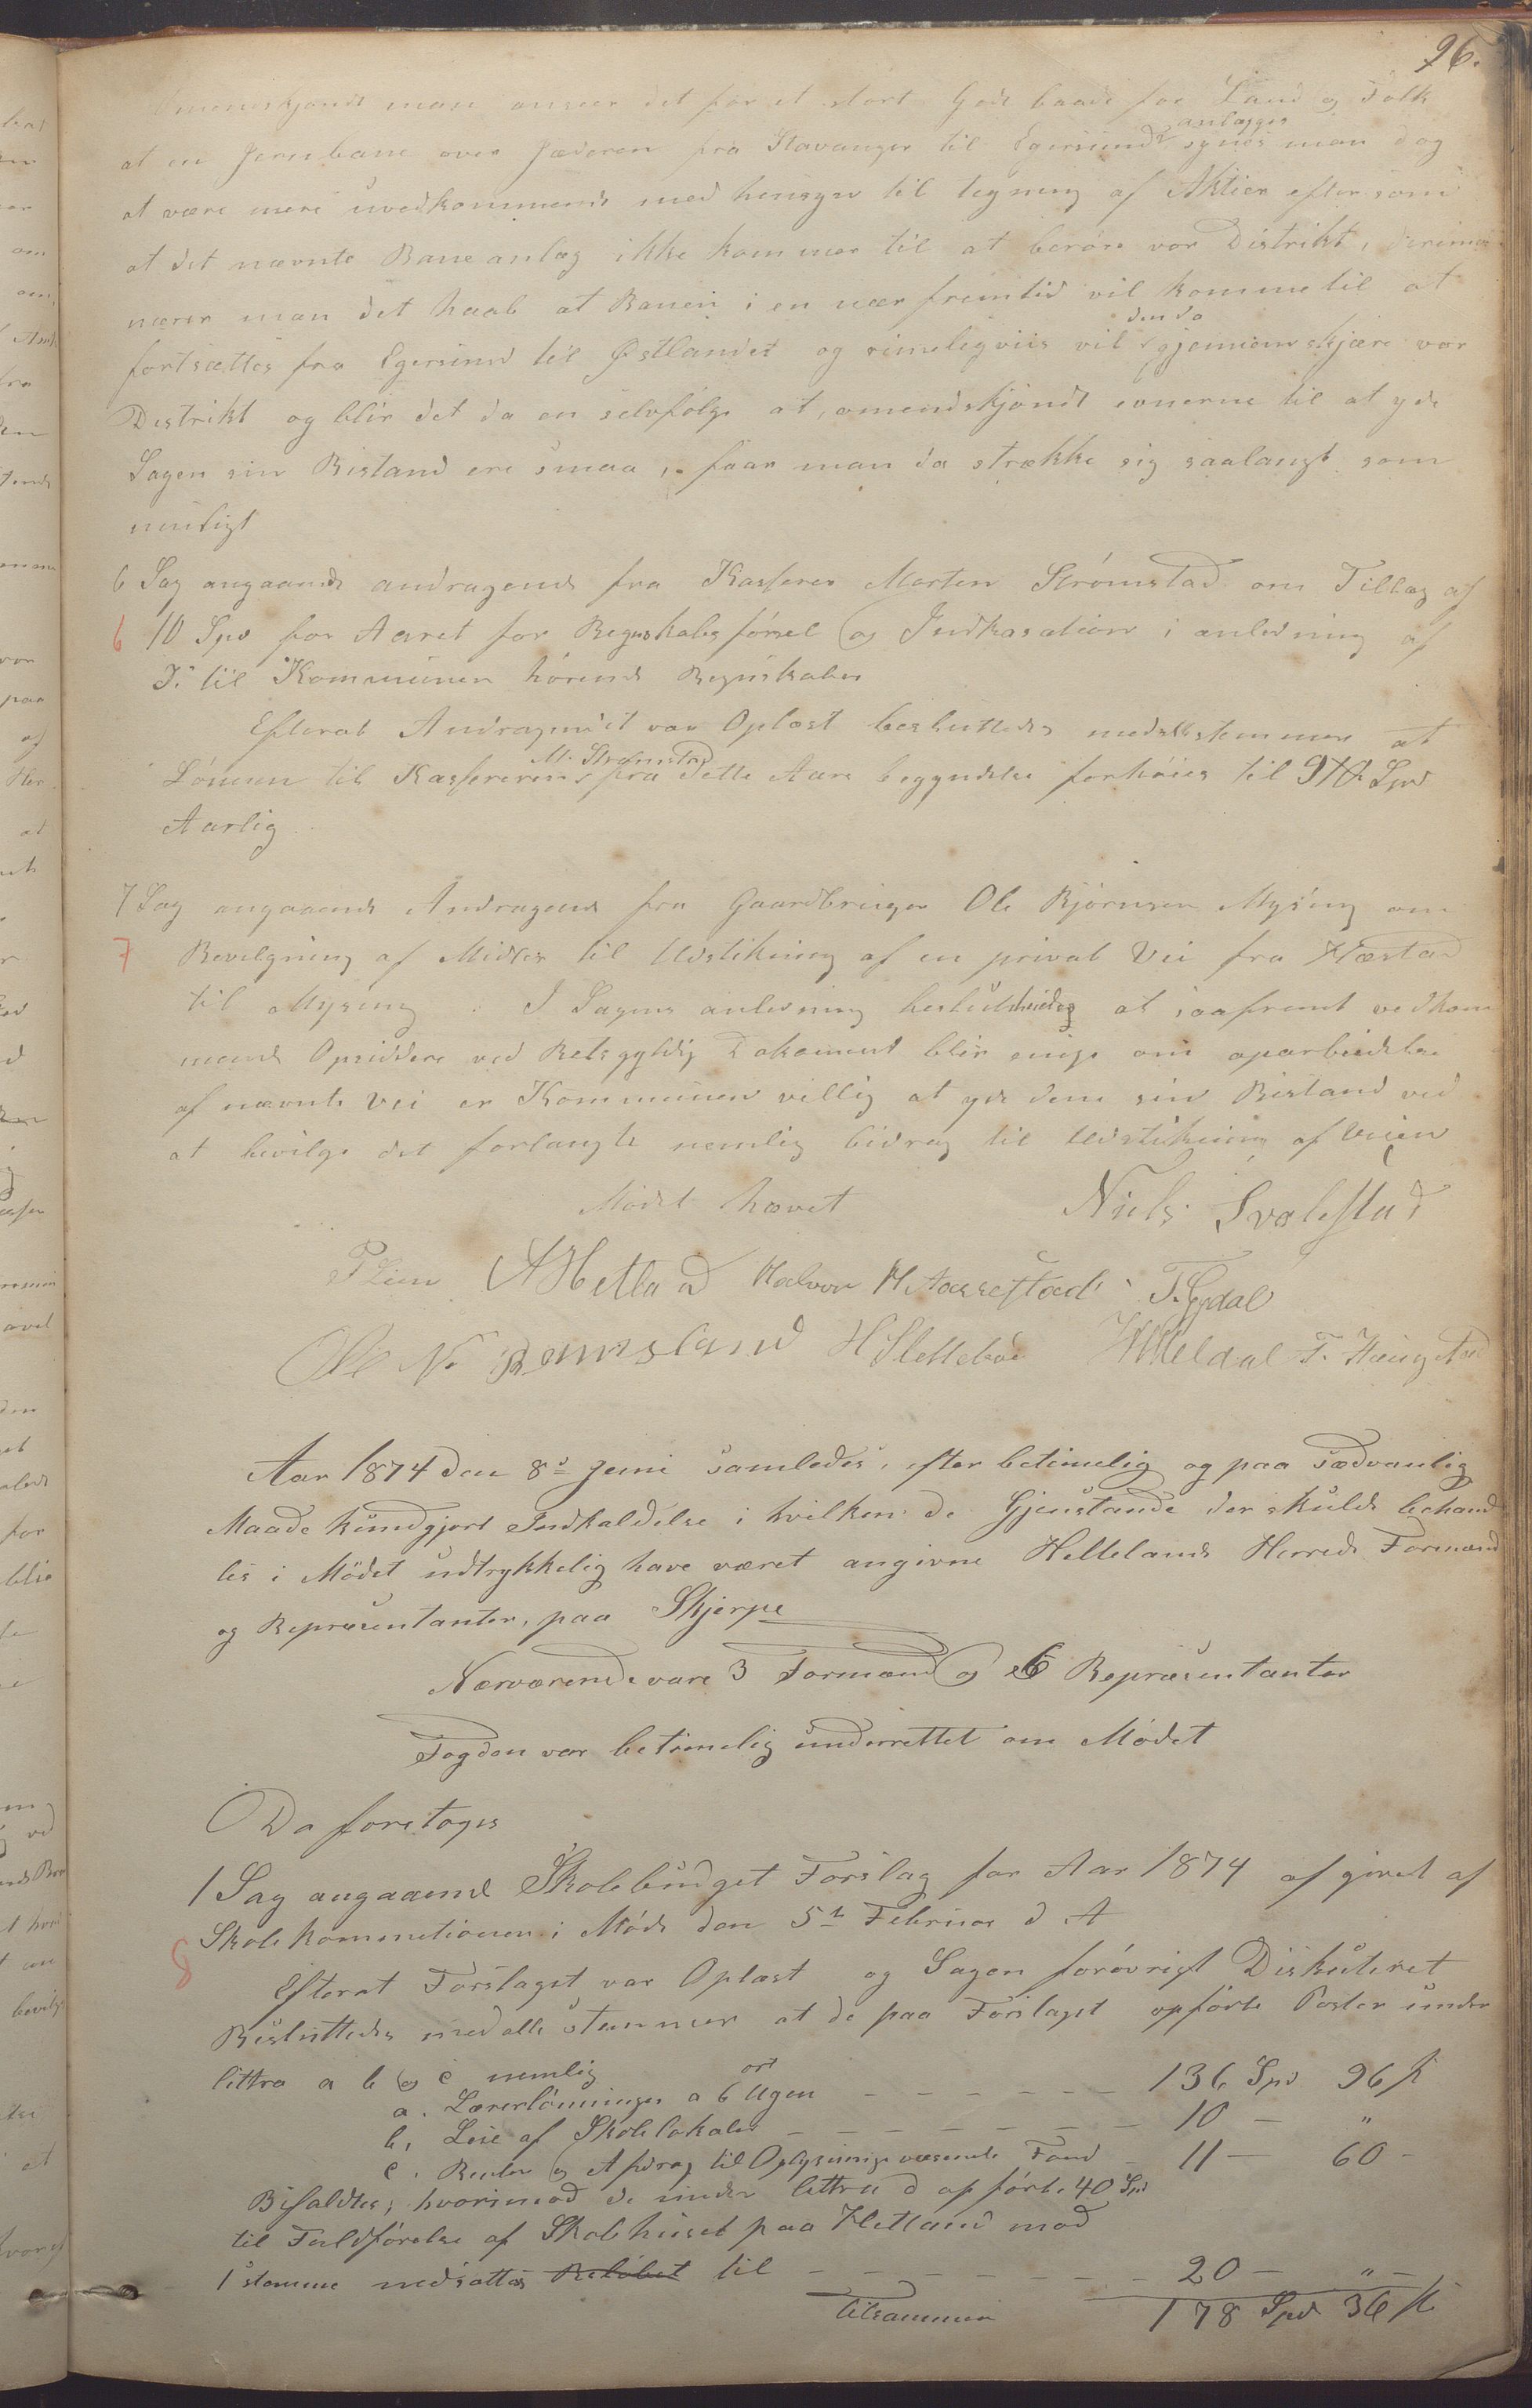 96.
Omenskjøndt man anseer det for et stort Gode baade for Land og Folk
at en Jernbane over Jæderen fra Stavanger til Egersund anlægges synes man dog
at være mere uvedkommende med hensyn til tegning af Aktier eftersom
at det nævnte Baneanlæg ikke kommer til at berøre vor Distrikt,
nærer man det haab at Banen i en nær fremtid vil komme til at
fortsættes fra Egersund til Østlandet og rimeligviis vil den da gjennemskjære vor
Distrikt og blir det da en selvfølge at, omendskjøndt evnerne til at yde
Sagen sin Bistand ere smaa, faar man da strække sig saalangt som
muligt
6 Sag angaaende andragende fra Kasserer Morten Strømstad om Tillæg af
6 10 Spd for Aaret for Regnskabsførsel og Indkasation i anledning af
De til Kommunen hørende Regnskaber
Efterat Andragendet var Oplæst besluttedes med alle stemmer at
Lønnen til Kassereren M. Strømstad fra dette Aars begyndelse forhøies til Spd
Aarlig
7 Sag angaaende Andragende fra Gaardbruger Ole Bjørnsen Mysing om
7 Bevilgning af Midler til Udstikning af en privat Vei fra Hæstad
til Mysing. I Sagens anledning besluttedes at saafremt vedkom
mende Opsiddere ved Retsgyldig Dokument blir enige om oparbeidelse
af nævnte Vei er Kommunen villig at yde dem sin Bistand ved
at bevilge det forlangte nemlig bidrag til Udstikning af Veien
Mødet hævet Niels Svalestad
P Lien A Hetland Halvor H Aarrestad T. Eydal
Ole N. Ramsland H Slettebø T. Haugstad
Aar 1874 den 8de Juni samledes, efter betimelig og paa sædvanlig
Maade kundgjort Indkaldelse i hvilken de Gjenstande der skulde behand
les i Mødet udtrykkelig have været angivne Hellelands Herreds Formænd
og Repræsentanter, paa Skjerpe
Nærværende vare 3 Formænd og 6 Repræsentanter
Fogden var betimelig underrettet om Mødet
Da foretoges
1 Sag angaaende Skolebudget Forslag for Aar 1874 afgivet af
Skolekommetionen i Møde den 5te Februar d A
8 Efterat Forslaget var Oplæst og Sagen forøvrigt Diskuteret
Besluttedes med alle stemmer at de paa Forslaget opførte Poster under
littra a b og c nemlig
a. Lærerlønninger a 6 ort Ugen – – – – – – 136 Spd 96 ß
b, Leie af Skolelokaler – – – – – – – 10 – "
c. Renter og Afdrag til Oplysningsvæsenets Fond – 11 – 60 –
Bifaldtes; hvorimod de under littra d opførte 40 Spd
til Fuldførelse af Skolehuset paa Hetland mod
1 stemme nedsattes Beløbet til – – – – – – – 20 – " –
tilsammen 178 Spd 36 ß